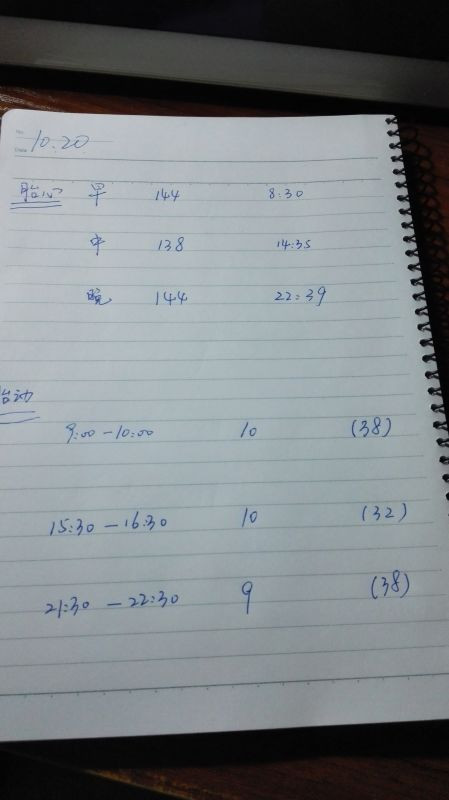 No.
Date 10.20
胎心 早 144 8:30
中 138 14:35
晚 144 22:39
胎动
9:00-10:00 10 (38)
15:30-16:30 10 (32)
21:30-22:30 9 (38)